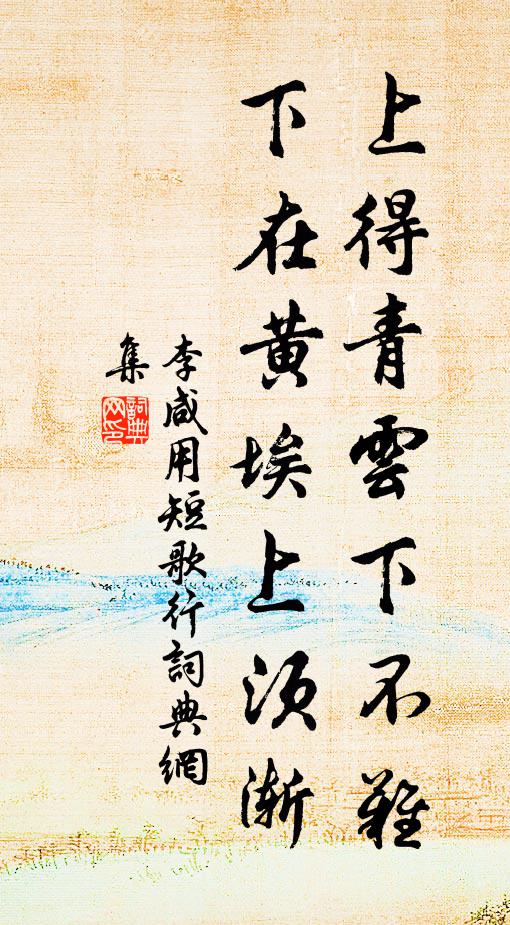 上得青雲下不難
下在黃埃上須漸
李咸用短歌行詞典網
集
詞典
网集